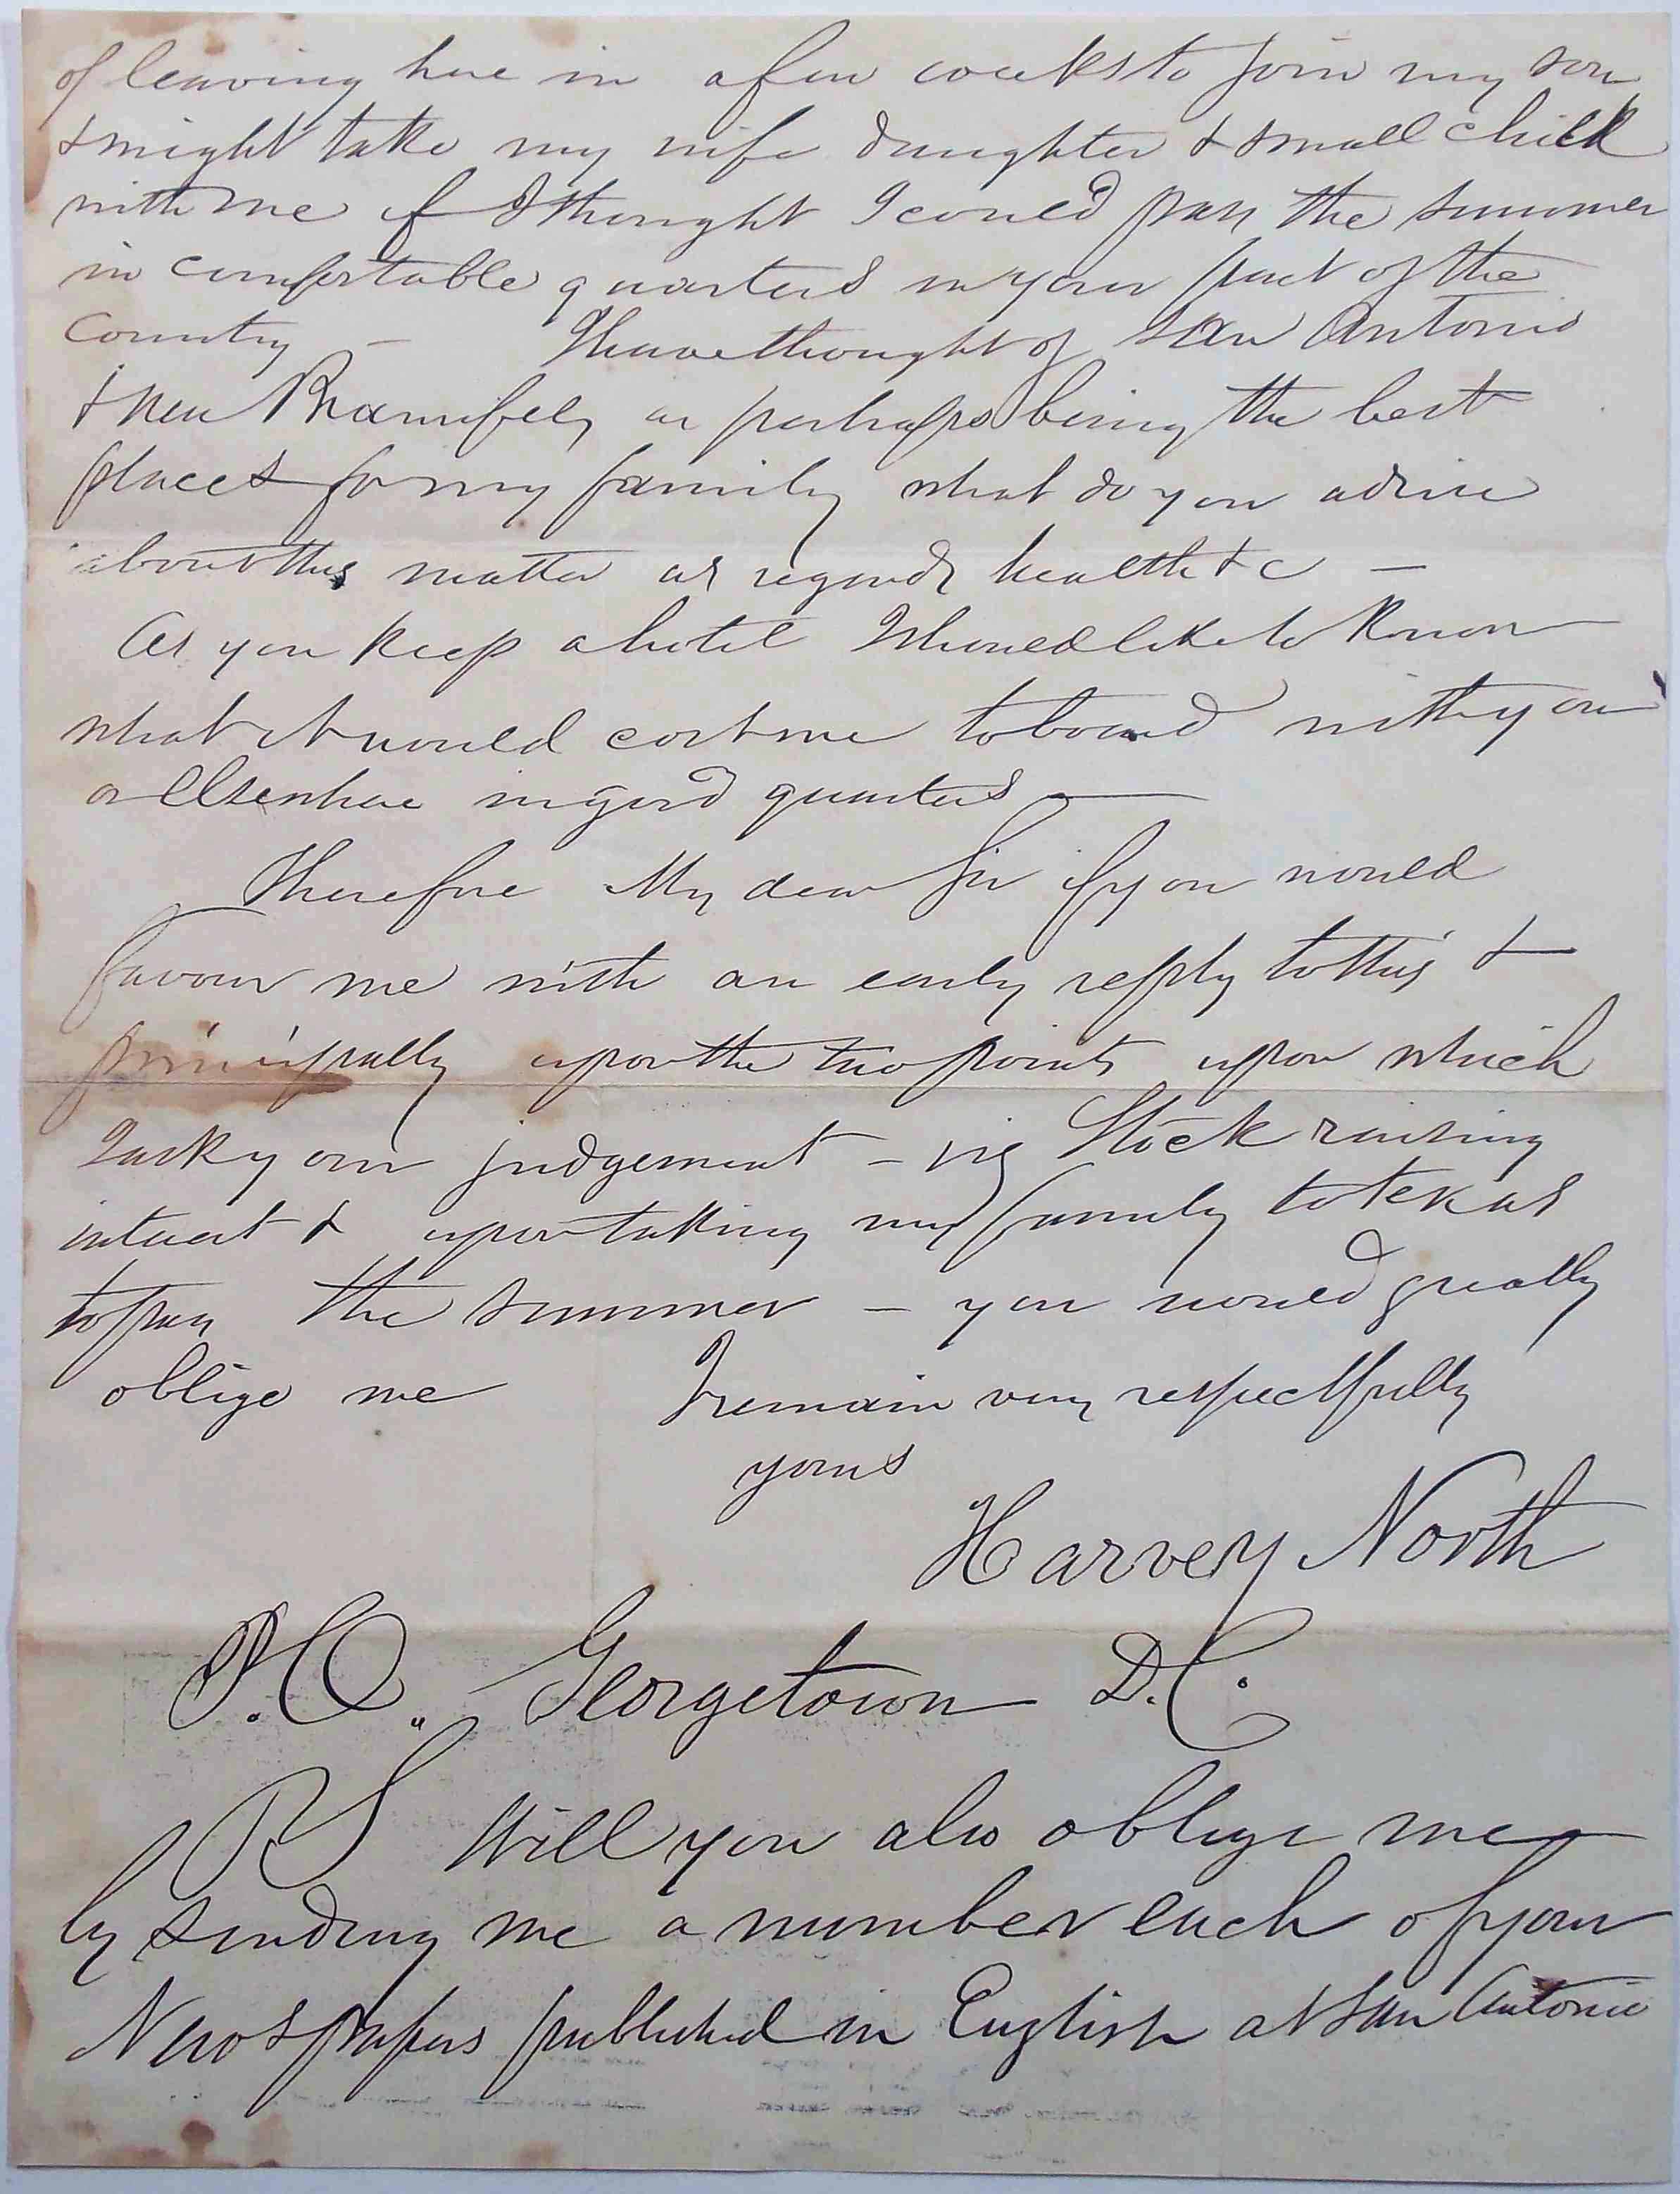 of leaving here in a few weeks to join my son
& might take my wife daughter & small child
with me if I thought I could pass the summer
in comfortable quarters in your part of the
Country - I have thought of San Antonio
& New Braunfels as perhaps being the best
places for my family what do you advise
about this matter as regards health &c -
As you keep a hotel I should like to know
what it would cost me to board with you
or elsewhere in good quarters -
Therefore My dear Sir if you would
favour me with an early reply to this &
principally upon the two points upon which
I ask your judgement - viz Stock raising
interest & upon taking my family to Texas
to pass the summer - you would greatly
oblige me I remain very respectfully
yours
Harvey North
P.O. Georgetown D.C.
PS Will you also oblige me
by sending me a number each of your
Newspapers published in English at San Antonio